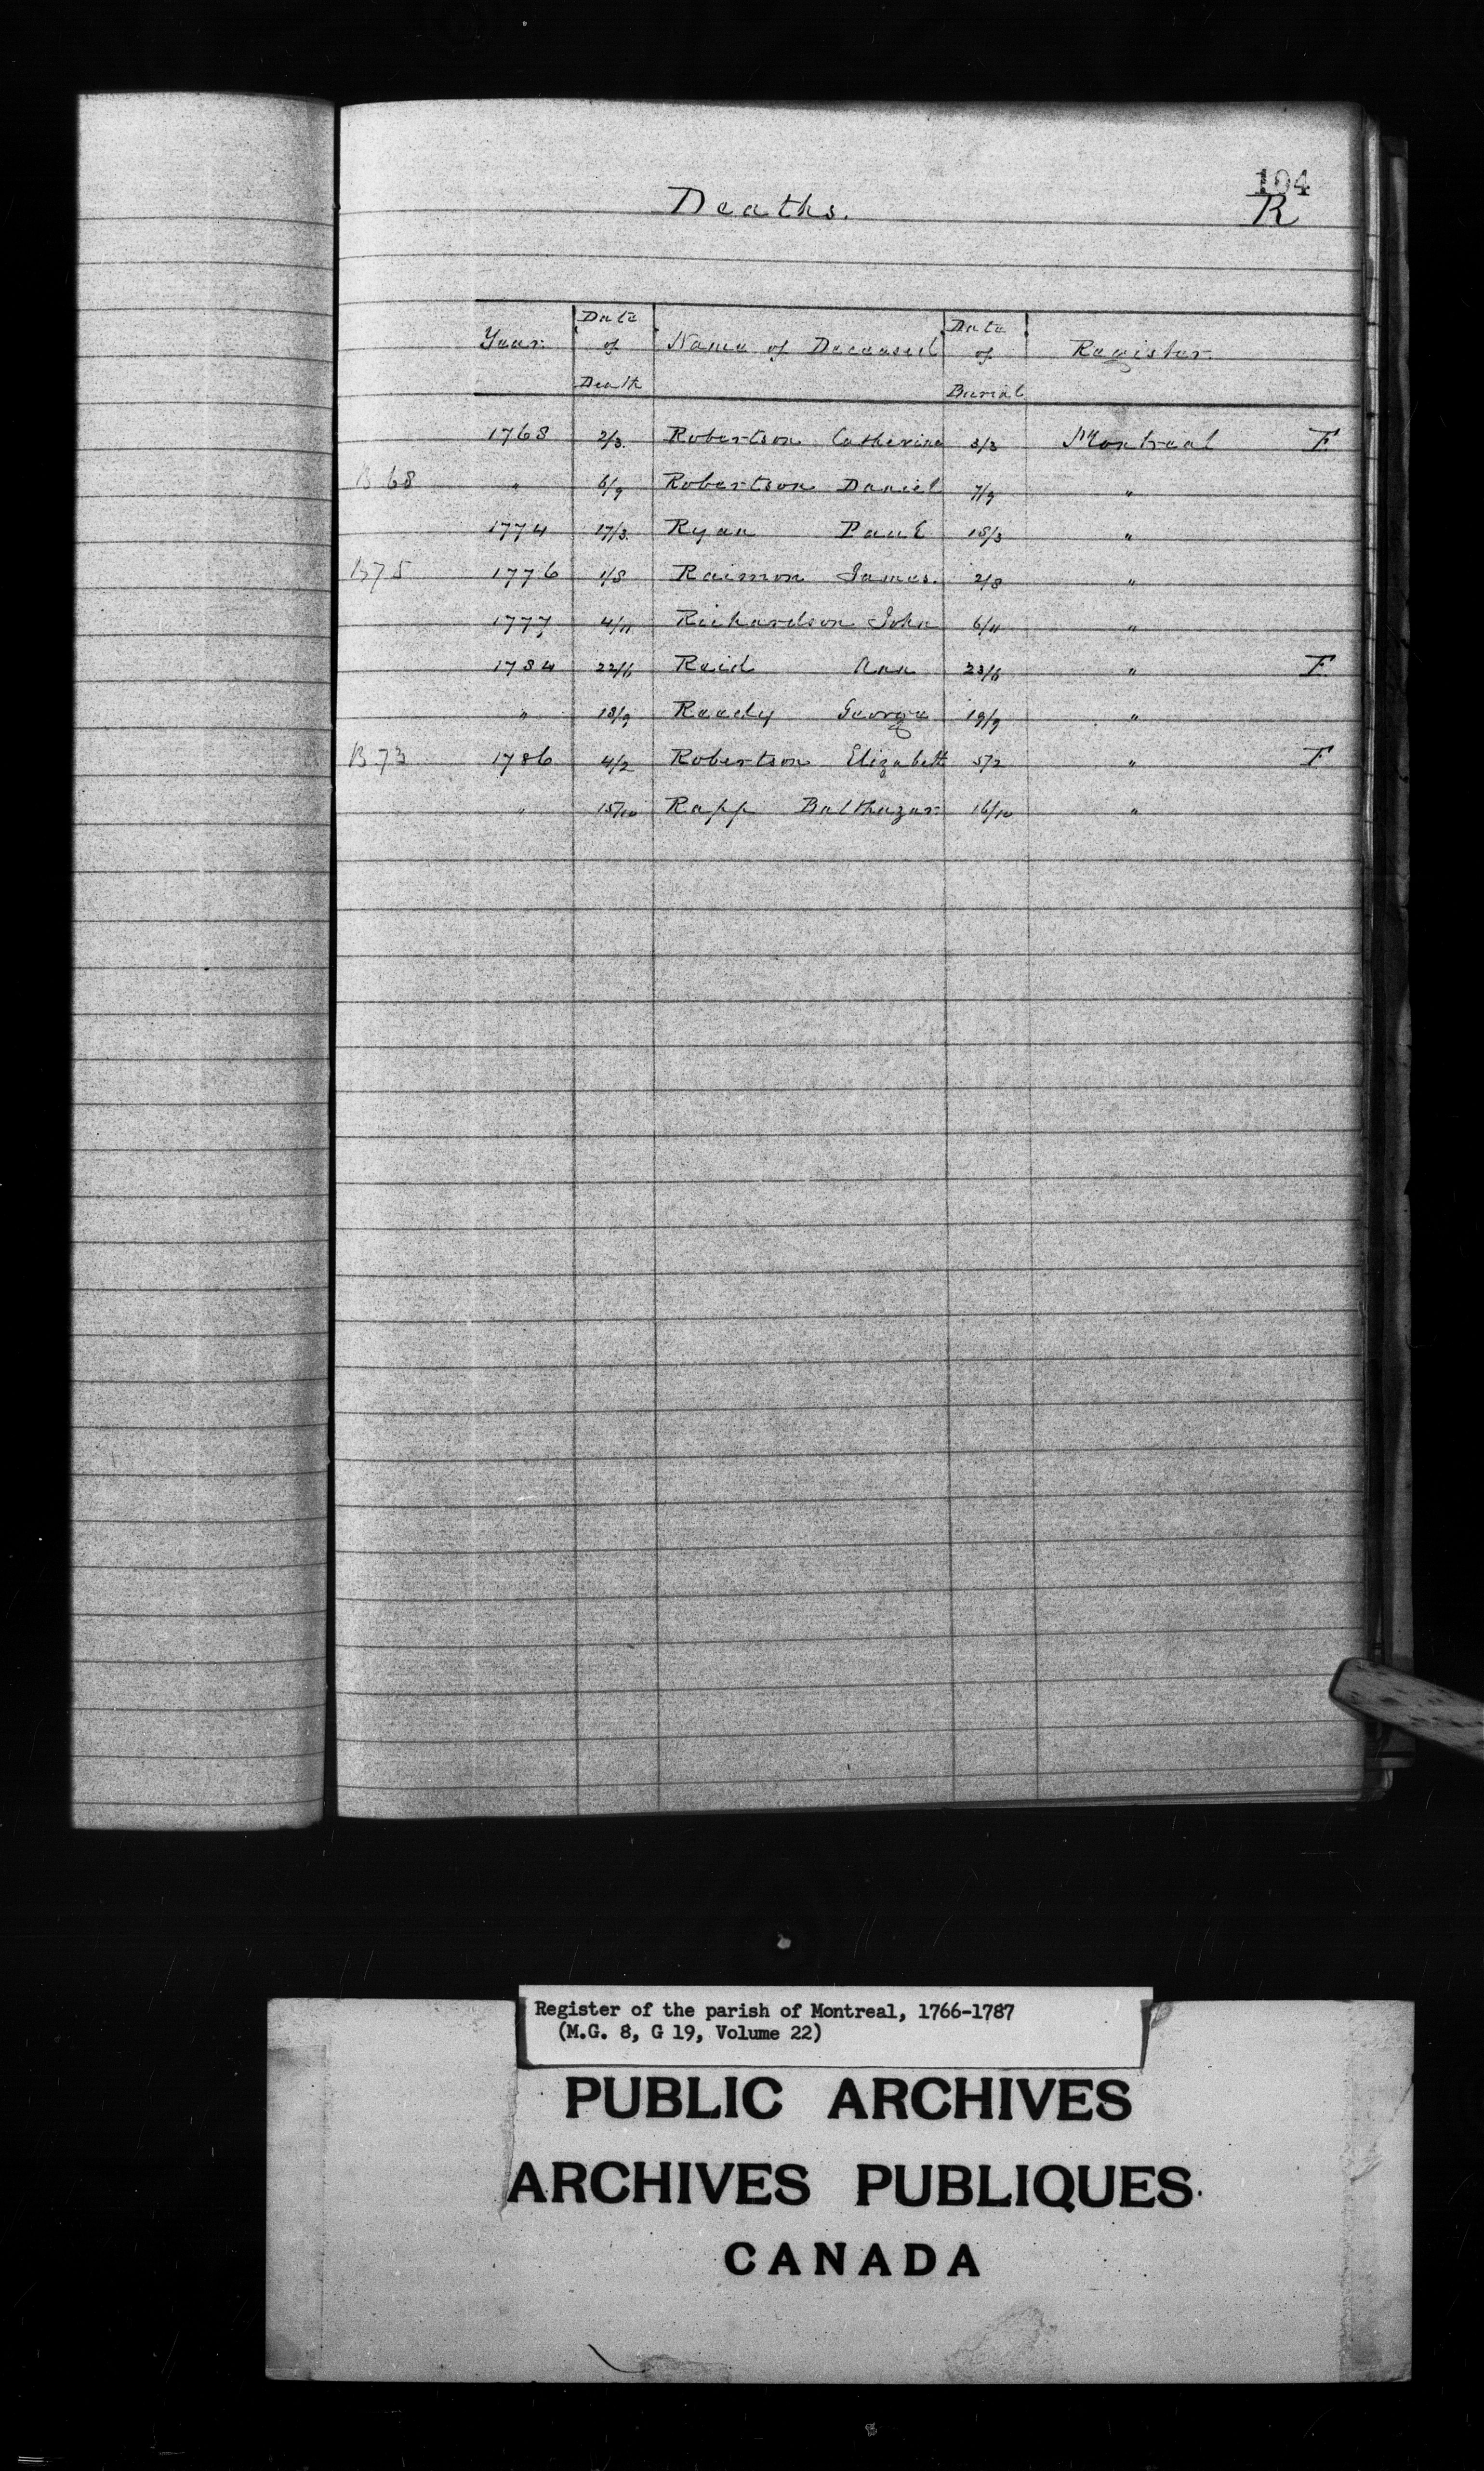 104
Deaths. R
Year. Date of Death Name of Deceased Date of Burial Register.
1768 2/3. Robertson Catherine 3/3 Montreal F.
B 68 " 6/9 Robertson Daniel 7/9 "
1774 17/3. Ryan Paul 18/3 "
B 75 1776 1/8 Raimon James. 2/8 "
1777 4/11 Richardson John 6/11 "
1784 22/6 Reid Ann 23/6 " F.
" 18/9 Ready George 19/9 "
B 73 1786 4/2 Robertson Elizabeth 5/2 " F
" 15/10 Rapp Balthazar 16/10 "
Register of the parish of Montreal, 1766-1787
(M.G. 8, G 19, Volume 22)
PUBLIC ARCHIVES
ARCHIVES PUBLIQUES
CANADA